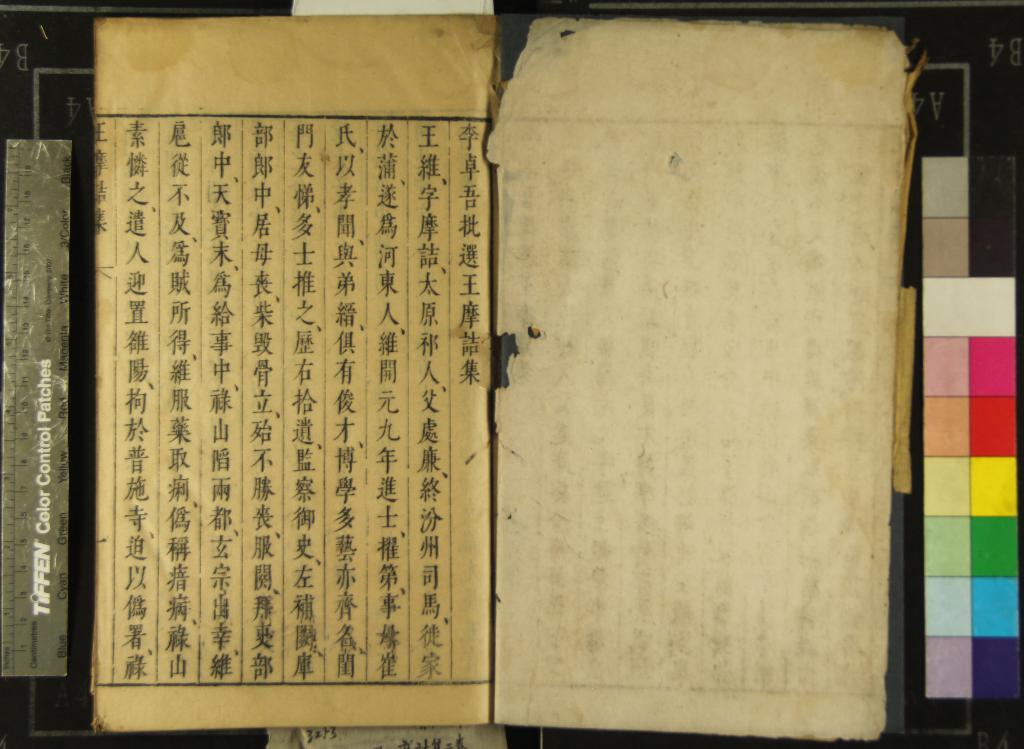 李卓吾批選王摩詰集
王維字摩詰、太原祁人、父處廉、終汾州司馬、徙家
於蒲、遂爲河東人、維開元九年進士、擢第、事母崔
氏、以孝聞、與弟縉俱有俊才、博學多藝亦齊名、閨
門友悌、多士推之、歷右拾遺、監察御史、左補闕、庫
部郎中、居母喪、柴毀骨立、殆不勝喪、服闋、拜吏部
郎中、天寶末、爲給事中、祿山陷兩都、玄宗出幸、維
扈從不及、爲賊所得、維服藥取痢、僞稱瘖病、祿山
素憐之、遣人迎置雒陽、拘於普施寺、迫以僞署、祿
王摩詰集
一
TIFFEN Color Control Patches
Blue Cyan Green Yellow Red Magenta White 3/Color Black
Inches
Centimetres
B4
A4
B4
A4
3253